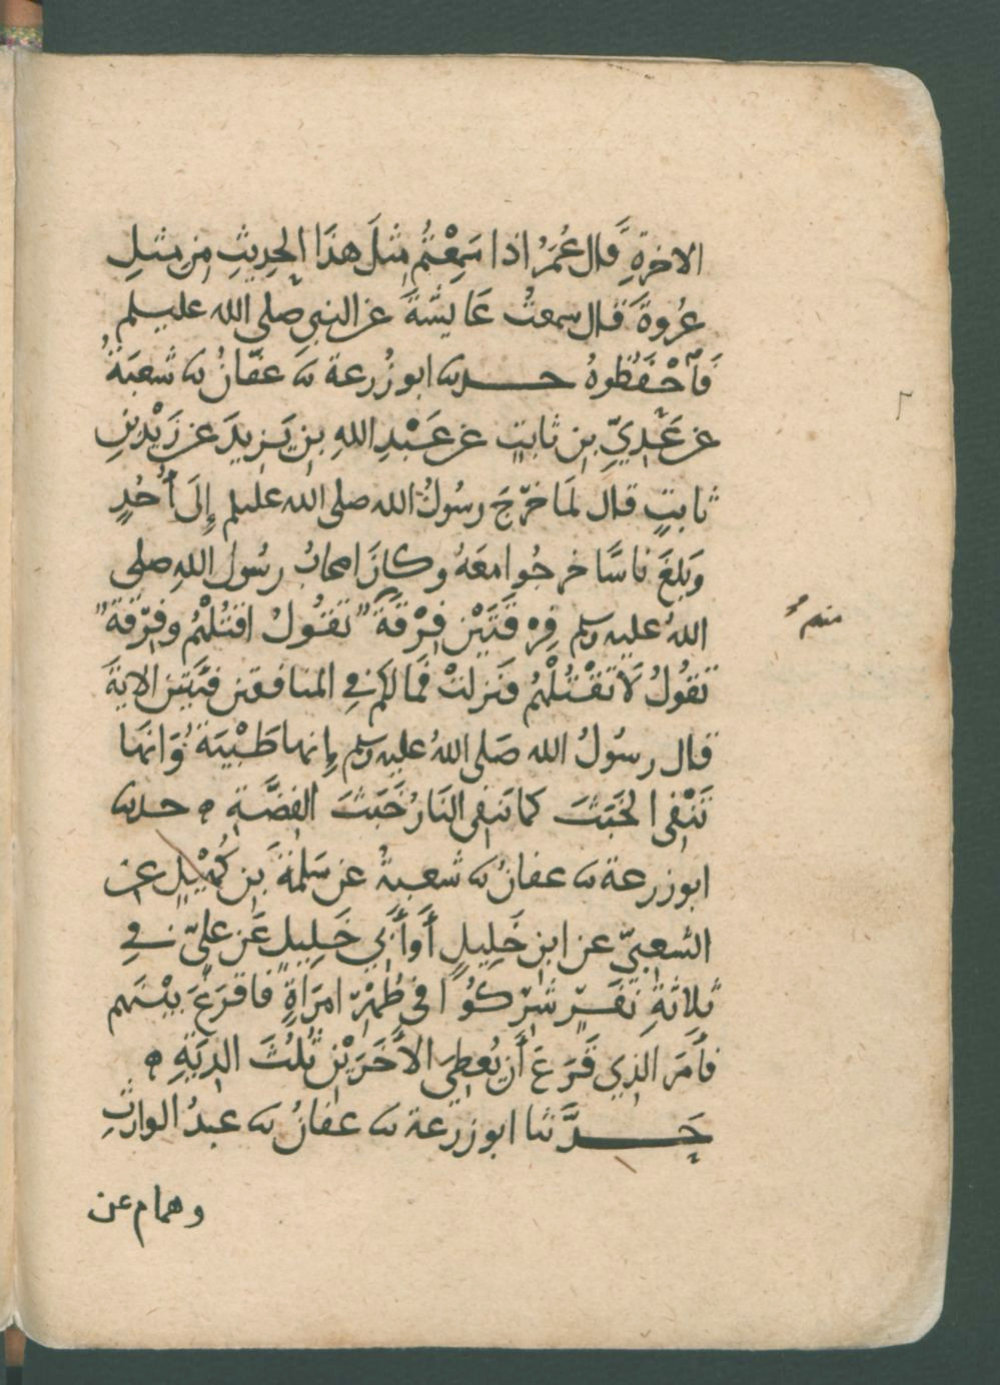 الاخرةِ قال عُمَرُ اذا سَمِعْتُم مِثلَ هذَا الحدِيثِ مِن مثلِ
عُروةَ قال سمعتُ عَايشَةَ عن النبي صلى الله عليسلم
فَاحْفَظوهُ حدثنا ابو زُرعة ثنا عفّانُ ثنا شعبَةُ
عن عَدِيِّ بنِ ثابتٍ عن عَبْدِ اللهِ بنِ يَزِيدَ عن زَيْدِ بنِ
ثابتٍ قال لمَا خرّجَ رسُولُ الله صلى الله عليسلم إِلَى أُحُدٍ
وَبلغَ ناسًا خرجُوا معَهُ وكانَ اصحابُ رسُول اللهِ صلى
اللهُ عليه وسلم فِرْقَتَيْنِ فِرْقَةً تقُولُ اقتُلْهُم وفِرْقةً
تقولُ لَا تقْتُلْهُم فنزلتْ فمَا لكم في المنافقين فئتين الايةَ
قال رسُولُ الله صَلى اللهُ عليه وسلم إنها طَيْبَةُ وَانهَا
تَنْفِى الخَبَثَ كما تنفى النَارُ خَبَثَ الفِضَّةِ ه حدثنا
ابو زرعة ثنا عفانُ ثنا شعبةُ عن سَلمَةَ بنِ كُهَيْلٍ عن
الشعبيّ عن ابنِ خَلِيلٍ أَو أَبي خَلِيلٍ عَن عليّ في
ثلاثةِ نَفَرٍ شَرِكُوا في طُهْرِ امرَاةٍ فاقرَعَ بيْنَهم
فأمَر الذِي قَرَعَ أَن يُعطِيَ الأخَرَيْنِ ثُلُثَ الدِيَةِ ه
حَدَّثنا ابو زرعة ثنا عفانُ ثنا عبدُ الوارثِ
وهمام عن